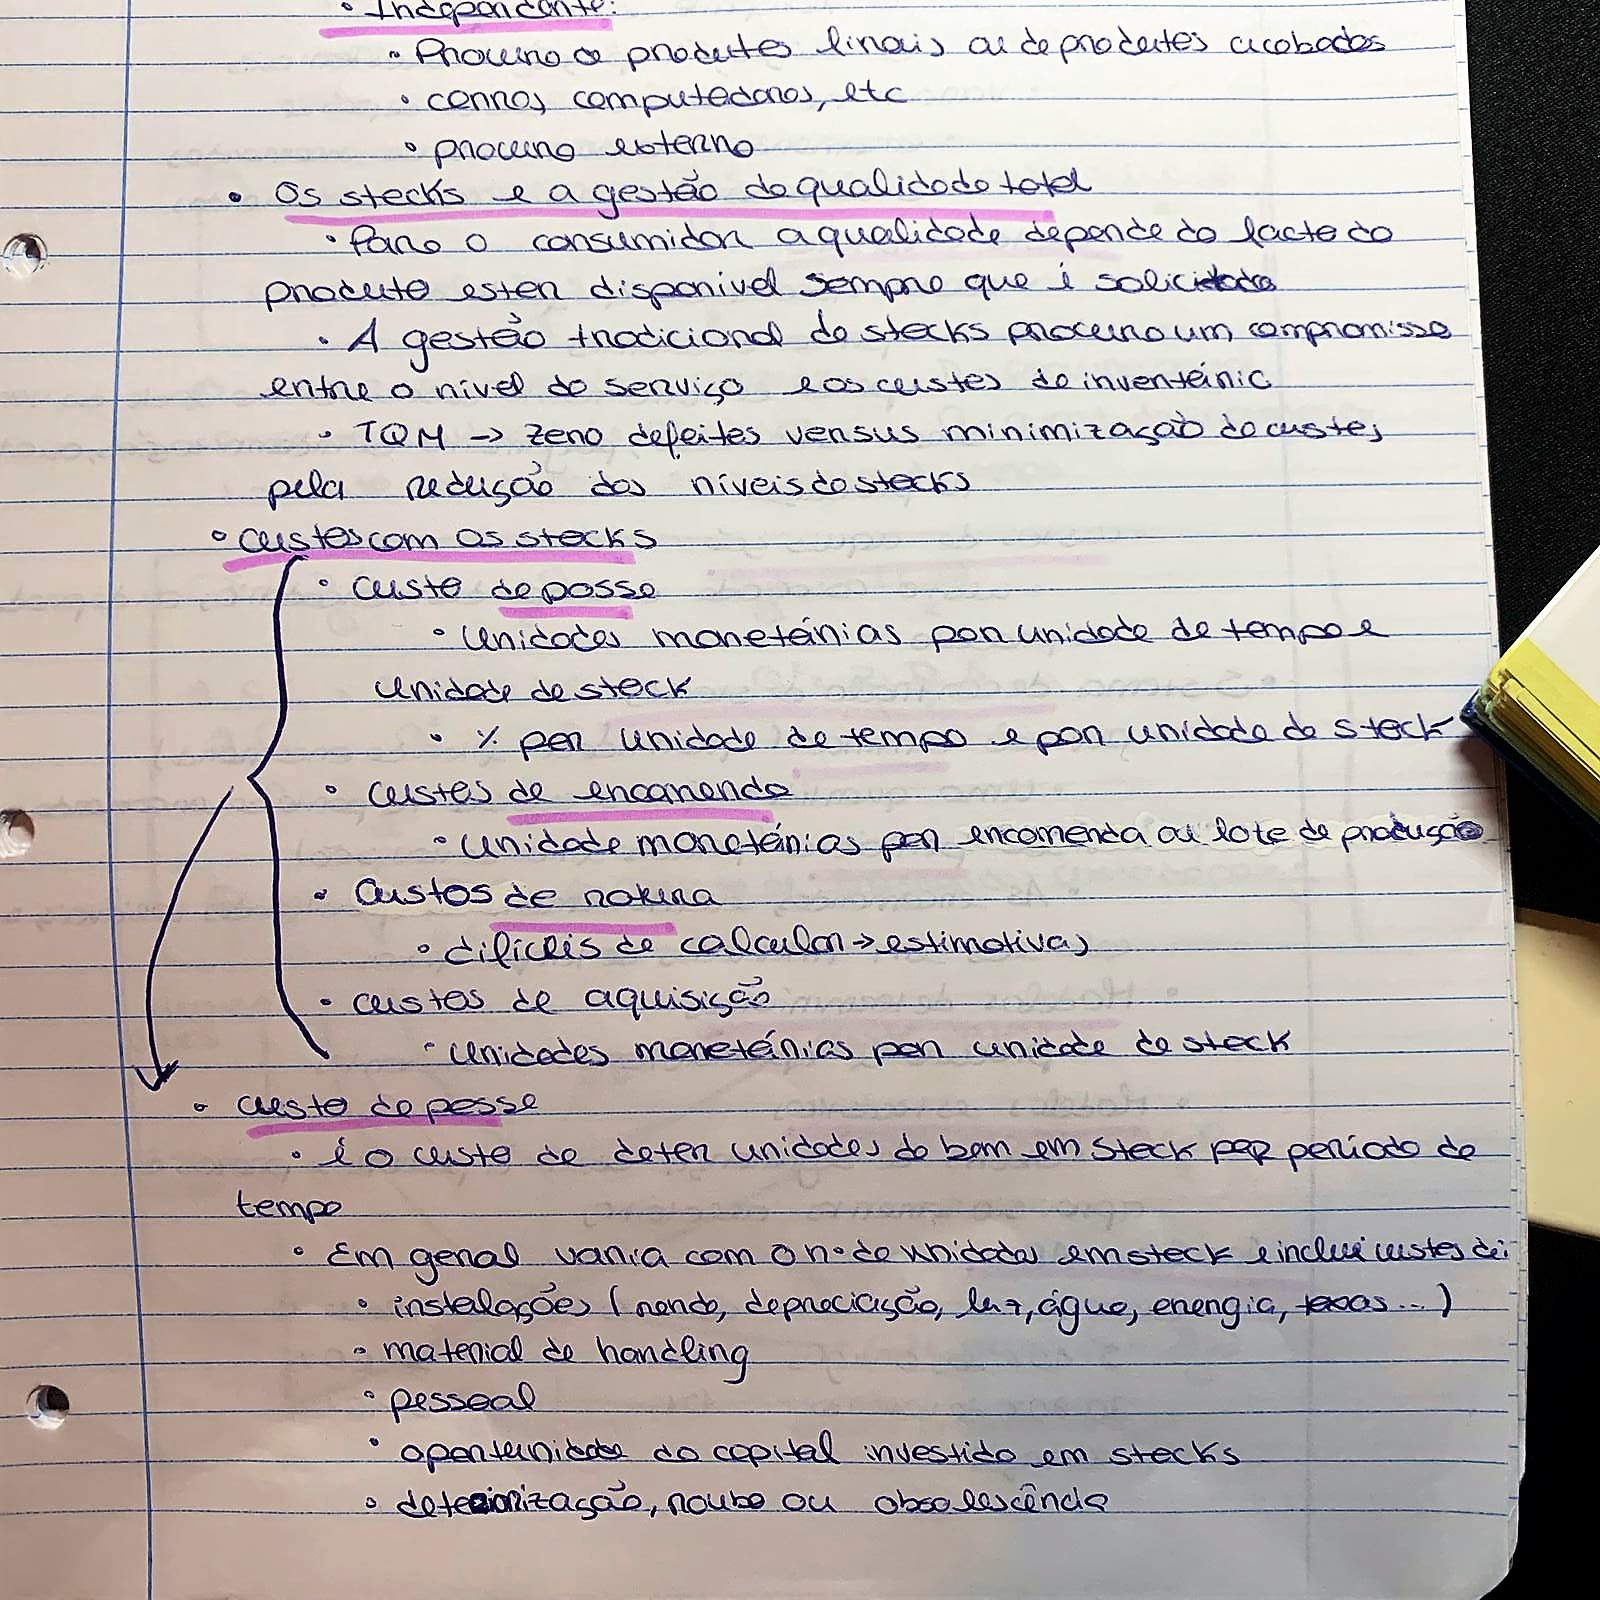 • Independente:
• Procura a produtos finais ou de produtos acabados
• carros, computadores, etc
• procura externa
• Os stocks e a gestão da qualidade total
• Para o consumidor a qualidade depende do facto do
produto estar disponível sempre que é solicitado
• A gestão tradicional de stocks procura um compromisso
entre o nível de serviço e os custos de inventário
• TQM → zero defeitos versus minimização de custos
pela redução dos níveis de stocks
• custos com os stocks
• custo de posse
• unidades monetárias por unidade de tempo e
unidade de stock
• % por unidade de tempo e por unidade de stock
• custos de encomenda
• unidade monetárias por encomenda ou lote de produção
• Custos de rotura
• difíceis de calcular → estimativas
• custos de aquisição
• unidades monetárias por unidade de stock
• custo de posse
• é o custo de deter unidades do bem em stock por período de
tempo
• Em geral varia com o nº de unidades em stock e inclui custos de:
• instalações (renda, depreciação, luz, água, energia, taxas...)
• material de handling
• pessoal
• oportunidade do capital investido em stocks
• deteriorização, roubo ou obsolescência